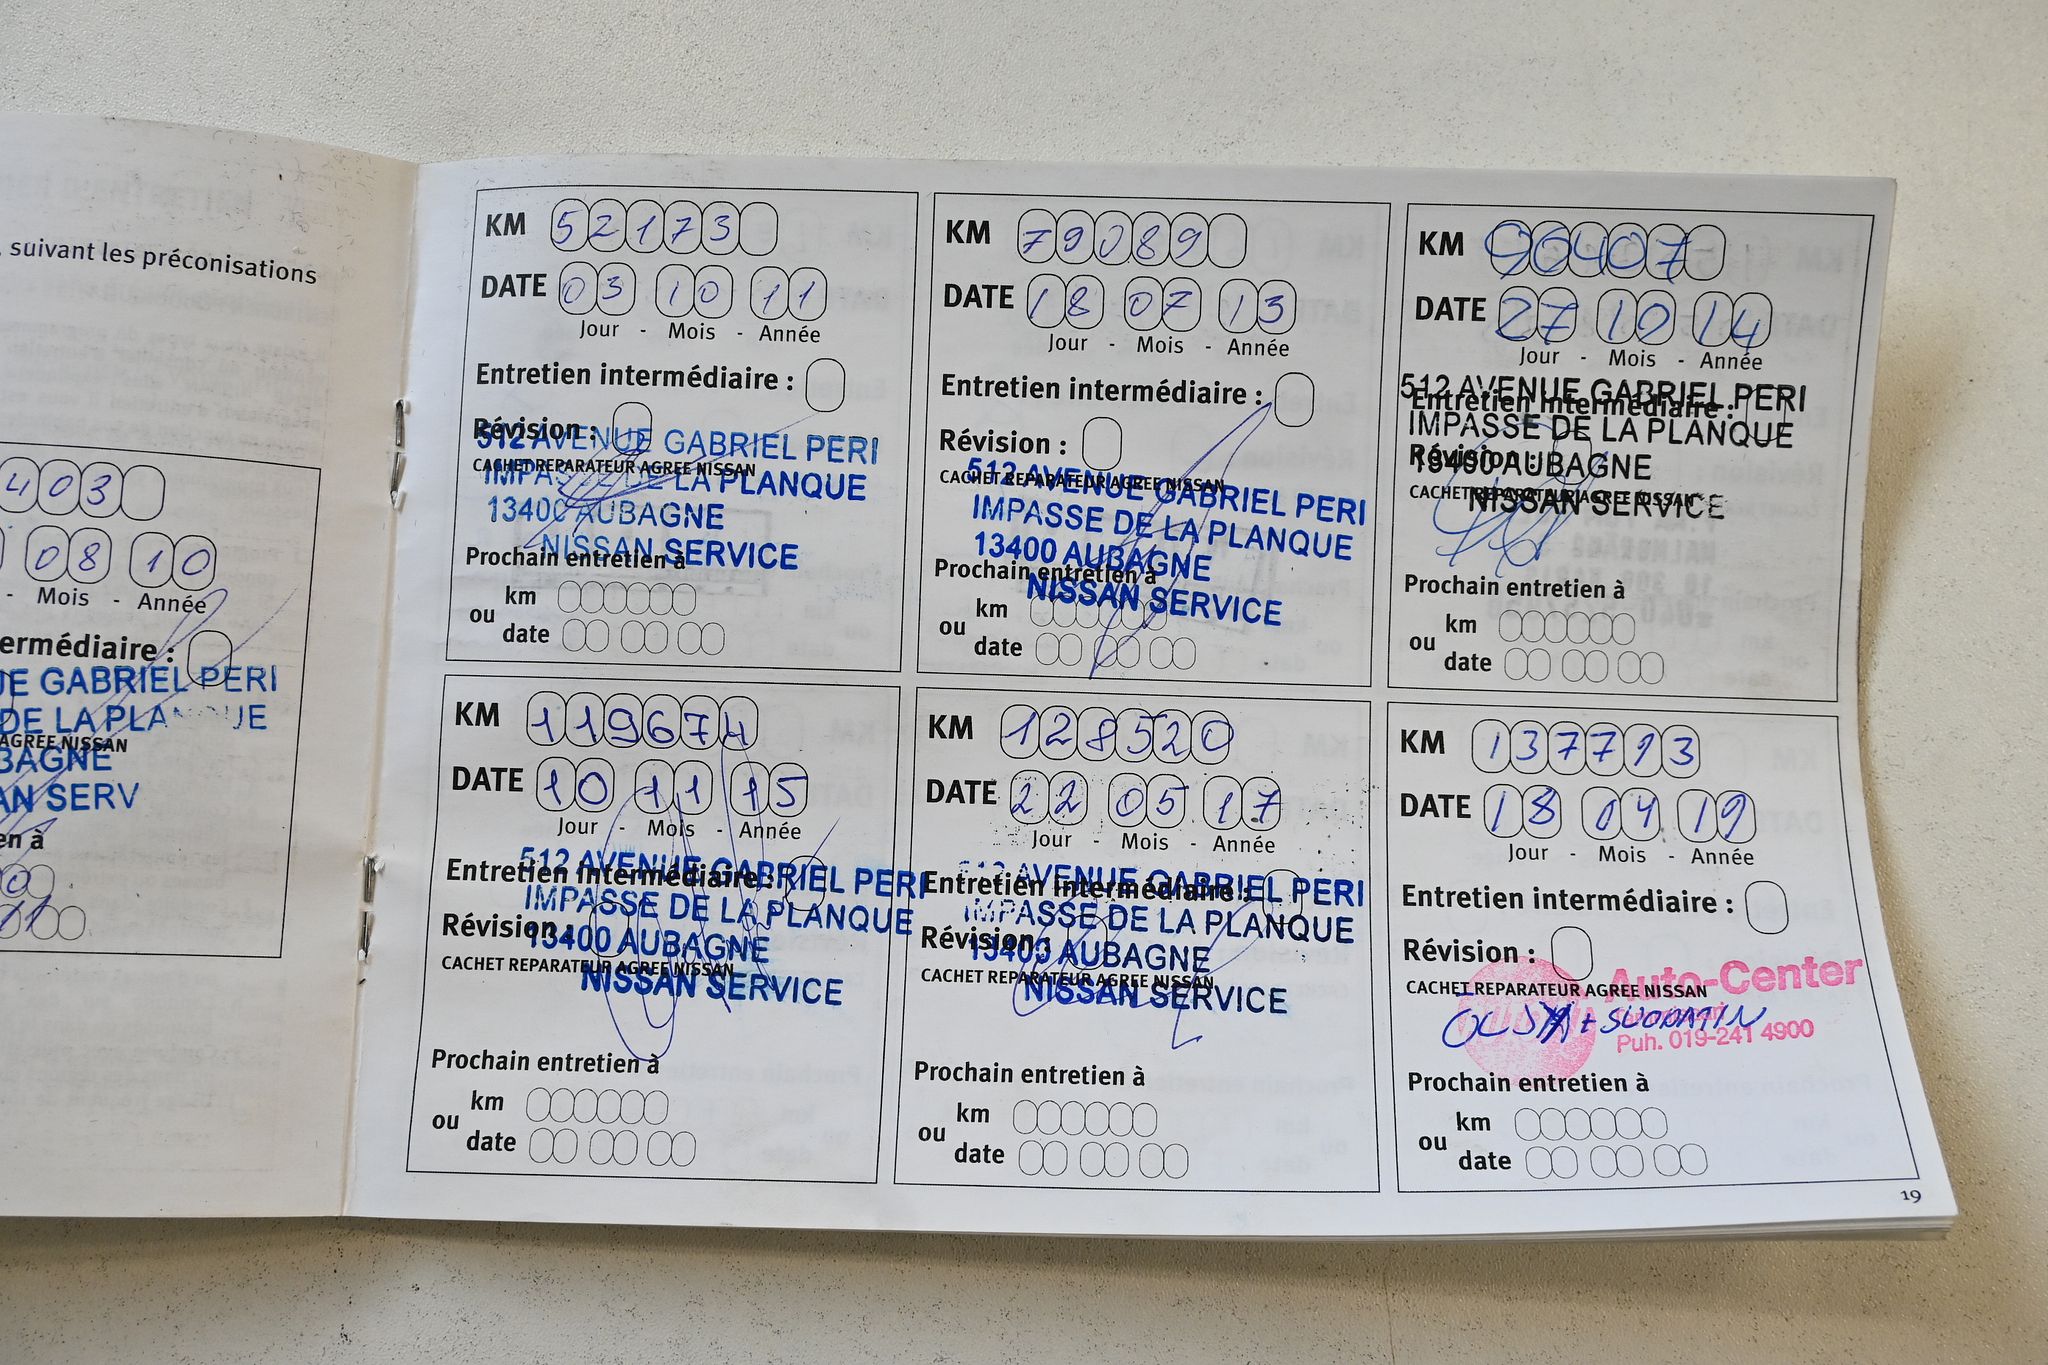 , suivant les préconisations
403
08 10
- Mois - Année
termédiaire :
UE GABRIEL PERI
DE LA PLANQUE
AGREE NISSAN
BAGNE
AN SERV
en à
0
11
KM 52173
DATE 03 10 11
Jour - Mois - Année
Entretien intermédiaire :
Révision :
512 AVENUE GABRIEL PERI
CACHET REPARATEUR AGREE NISSAN
IMPASSE DE LA PLANQUE
13400 AUBAGNE
NISSAN SERVICE
Prochain entretien à
km
ou
date
KM 79089
DATE 18 07 13
Jour - Mois - Année
Entretien intermédiaire :
Révision :
512 AVENUE GABRIEL PERI
CACHET REPARATEUR AGREE NISSAN
IMPASSE DE LA PLANQUE
13400 AUBAGNE
Prochain entretien à
NISSAN SERVICE
km
ou
date
KM 96407
DATE 27 10 14
Jour - Mois - Année
512 AVENUE GABRIEL PERI
Entretien intermédiaire :
IMPASSE DE LA PLANQUE
Révision :
13400 AUBAGNE
CACHET REPARATEUR AGREE NISSAN
NISSAN SERVICE
Prochain entretien à
km
ou
date
KM 119674
DATE 10 11 15
Jour - Mois - Année
512 AVENUE GABRIEL PERI
Entretien intermédiaire :
IMPASSE DE LA PLANQUE
Révision :
13400 AUBAGNE
CACHET REPARATEUR AGREE NISSAN
NISSAN SERVICE
Prochain entretien à
km
ou
date
KM 128520
DATE 22 05 17
Jour - Mois - Année
512 AVENUE GABRIEL PERI
Entretien intermédiaire :
IMPASSE DE LA PLANQUE
Révision :
13400 AUBAGNE
CACHET REPARATEUR AGREE NISSAN
NISSAN SERVICE
Prochain entretien à
km
ou
date
KM 137793
DATE 18 04 19
Jour - Mois - Année
Entretien intermédiaire :
Révision :
Auto-Center
CACHET REPARATEUR AGREE NISSAN
Tammisaari
+ SUODATIN
Puh. 019-241 4900
Prochain entretien à
km
ou
date
19